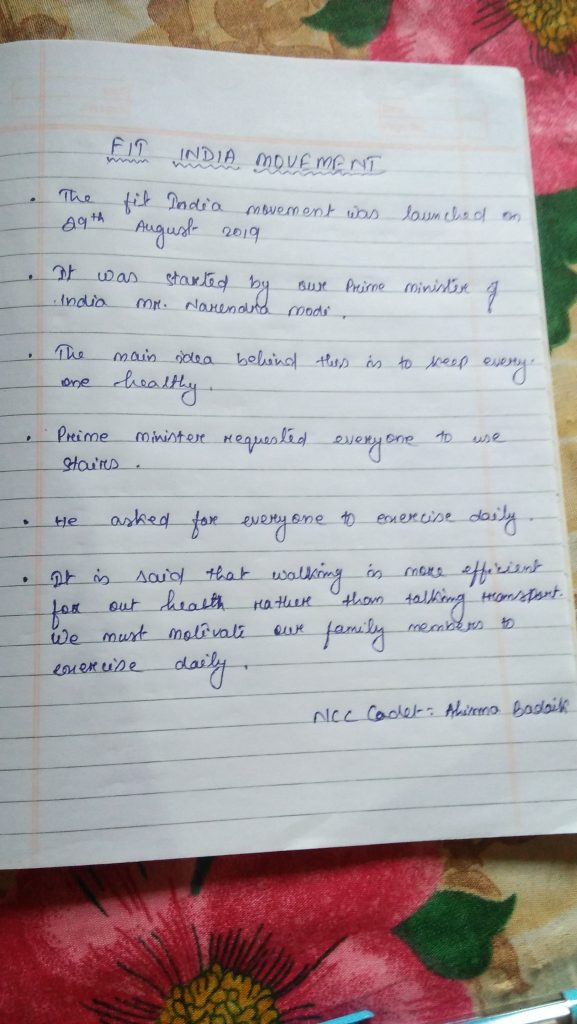 FIT INDIA MOVEMENT
• The fit India movement was launched on
29th August 2019
• It was started by our Prime minister of
India Mr. Narendra modi.
• The main idea behind this is to keep every-
one healthy.
• Prime minister requested everyone to use
stairs.
• He asked for everyone to exercise daily.
• It is said that walking is more efficient
for out health rather than talking transport.
We must motivate our family members to
exercise daily.
NCC Cadet: Badaik